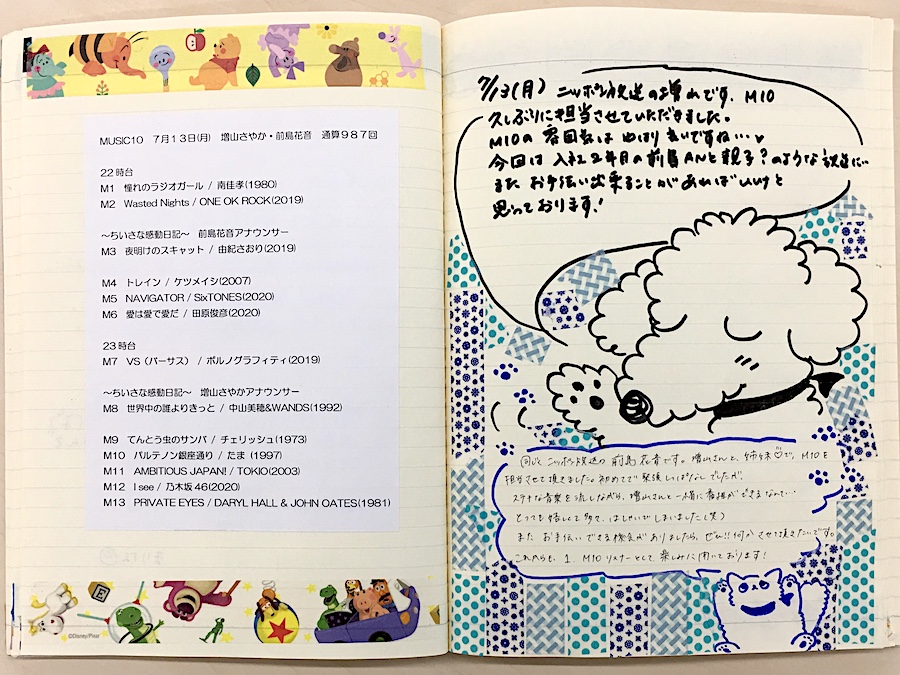 MUSIC10　７月１３日(月)　増山さやか・前島花音　通算９８７回
22時台
M1　憧れのラジオガール / 南佳孝(1980)
M2　Wasted Nights / ONE OK ROCK(2019)
～ちいさな感動日記～　前島花音アナウンサー
M3　夜明けのスキャット / 由紀さおり(2019)
M4　トレイン / ケツメイシ(2007)
M5　NAVIGATOR / SixTONES(2020)
M6　愛は愛で愛だ / 田原俊彦(2020)
23時台
M7　VS（バーサス） / ポルノグラフィティ(2019)
～ちいさな感動日記～　増山さやかアナウンサー
M8　世界中の誰よりきっと / 中山美穂&WANDS(1992)
M9　てんとう虫のサンバ / チェリッシュ(1973)
M10　パルテノン銀座通り / たま (1997)
M11　AMBITIOUS JAPAN! / TOKIO(2003)
M12　I see / 乃木坂46(2020)
M13　PRIVATE EYES / DARYL HALL & JOHN OATES(1981)
E
©Disney/Pixar
7/13(月) ニッポン放送の増山です. M10
久しぶりに担当させていただきました。
M10の雰囲気は やはり 良いですね…♥
今回は 入社2年目の前島ANと親子？のような 放送に…
また お手伝い出来ることが あれば いいなと
思っております！
同じく ニッポン放送の 前島花音です。増山さんと、姉妹♡で、M10を
担当させて頂きました。初めてで 緊張しっぱなしでしたが、
ステキな音楽を流しながら、増山さんと一緒に番組ができるなんて…
とっても嬉しくて 多々、はしゃいでしまいました(笑)
また お手伝いできる機会が ありましたら、ぜひ!! 何か させて頂きたいです。
これからも、1 M10リスナーとして、楽しみに聞いております！